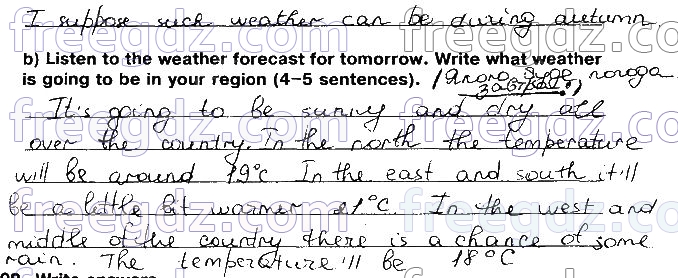 I suppose such weather can be during autumn.
b) Listen to the weather forecast for tomorrow. Write what weather
is going to be in your region (4–5 sentences). погода
It's going to be sunny and dry all
over the country. In the north the temperature
will be around 19°C In the east and south it'll
be a little bit warmer 21°C. In the west and
middle of the country there is a chance of some
rain. The temperature'll be 18°C
Write answers